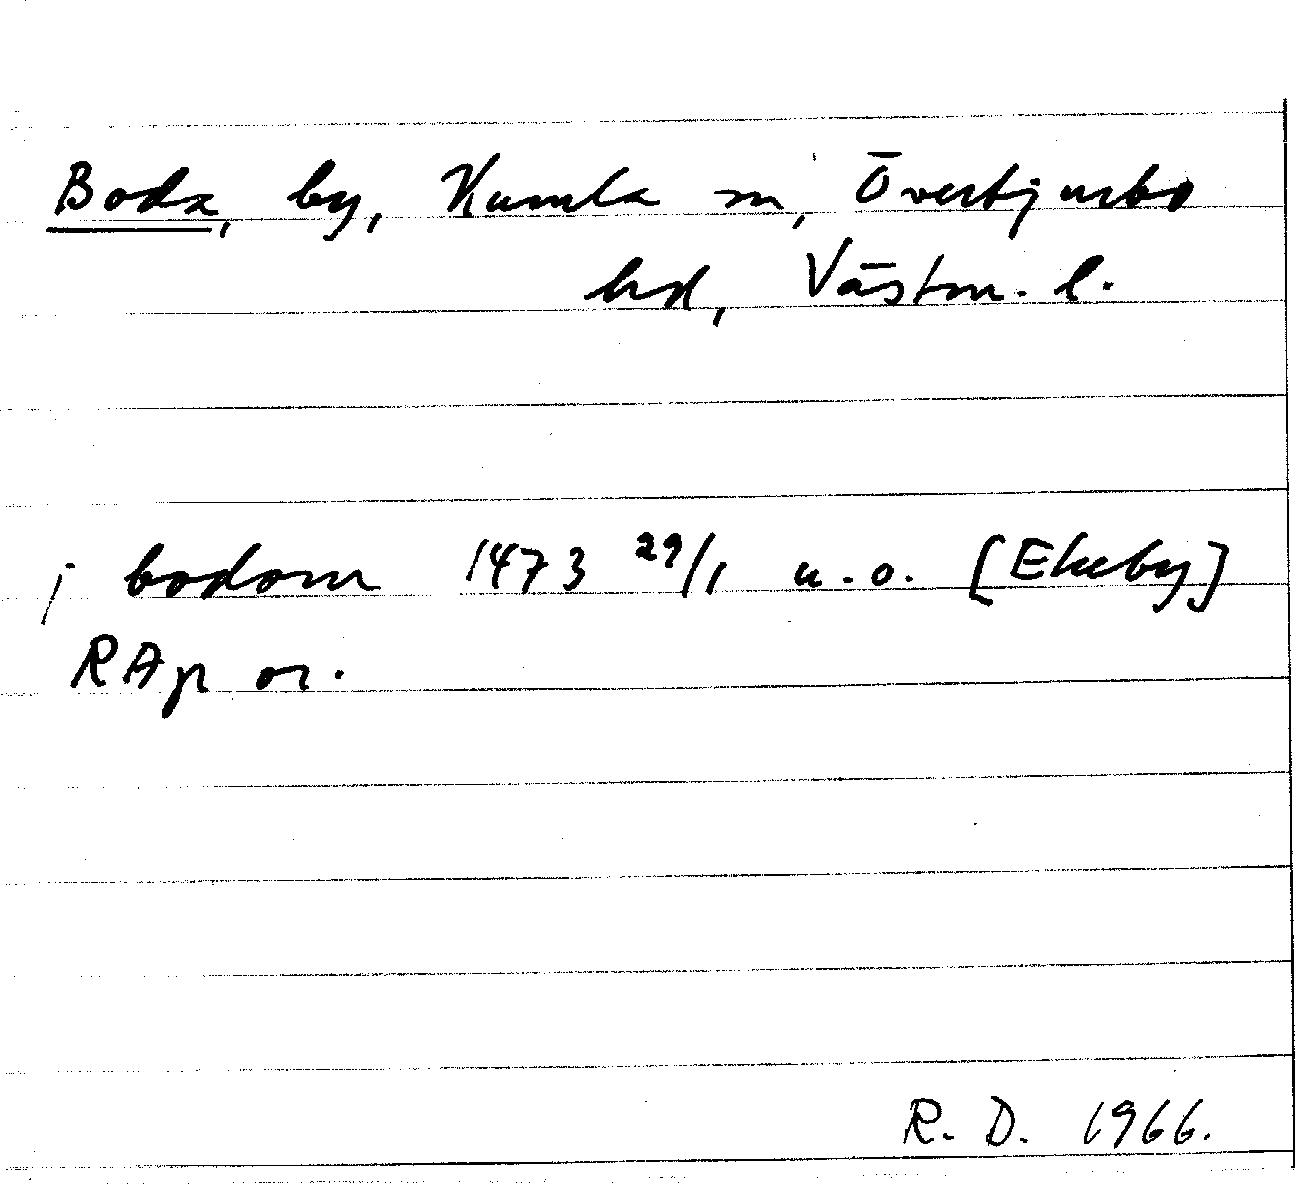 Boda, by, Kumla sn, Övertjurbo
hd, Västm. l.
j bodom 1473 29/1 u.o. [Ekeby]
RAp or.
R. D. 1966.